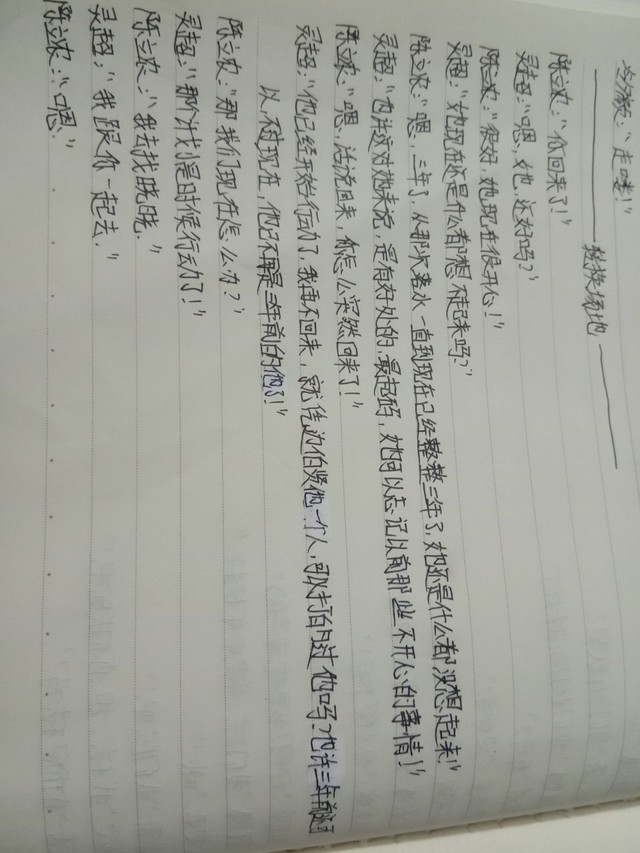 "走喽!"
转换场地
陈立农:"你回来了!"
灵超:"嗯,她,还好吗?"
陈立农:"很好,她现在很开心!"
灵超:"她现在还是什么都想不起来吗?"
陈立农:"嗯,三年了,从那次落水一直到现在已经整整三年了,她还是什么都没想起来!"
灵超:"也许这对她来说,是有好处的,最起码,她可以忘记以前那些不开心的事情!"
陈立农:"嗯,话说回来,你怎么突然回来了!"
灵超:"他已经开始行动了,我再不回来,就凭边伯贤他一个人,可以打的过他吗?也许三年前还可
以,不过现在,他已不再是三年前的他了!"
陈立农:"那我们现在怎么办?"
灵超:"那个计划是时候行动了!"
陈立农:"我去找晓晓."
灵超:"我跟你一起去."
陈立农:"嗯."